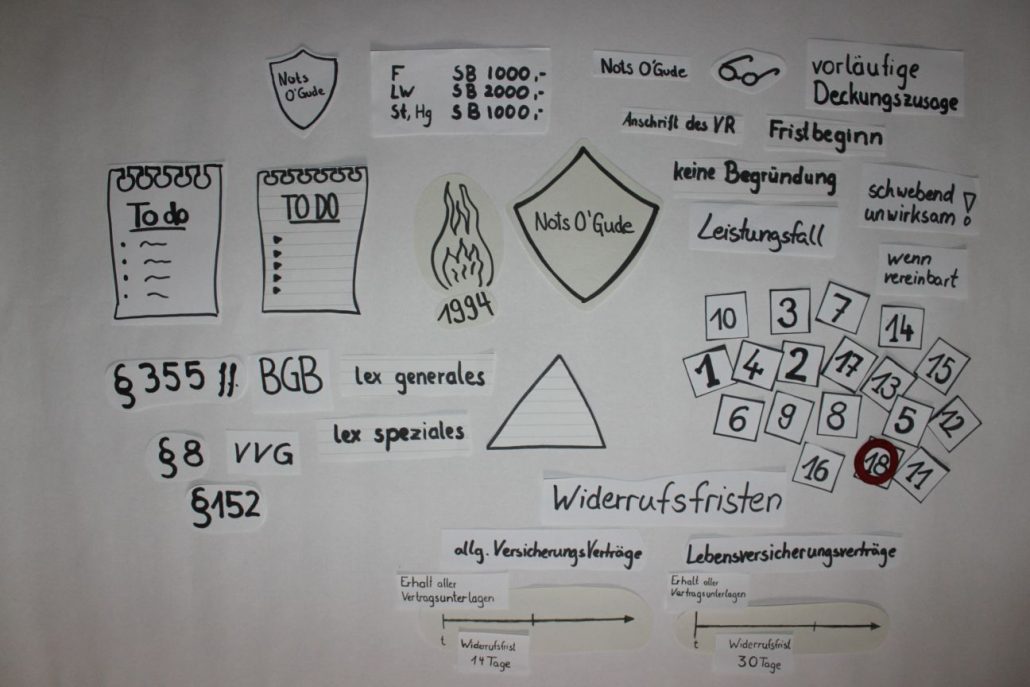 Nots
O'Gude
F SB 1000,-
LW SB 2000,-
St, Hg SB 1000,-
Nots O'Gude
vorläufige
Deckungszusage
Anschrift des VR
Fristbeginn
keine Begründung
schwebend
unwirksam !
Leistungsfall
wenn
vereinbart
To do
TO DO
1994
Nots O'Gude
10
3
7
14
1
4
2
17
13
15
6
9
8
5
12
16
18
11
§ 355 ff.
BGB
lex generales
§8
VVG
lex speziales
§152
Widerrufsfristen
allg. VersicherungsVerträge
Erhalt aller
Vertragsunterlagen
t
Widerrufsfrist
14 Tage
Lebensversicherungsverträge
Erhalt aller
Vertragsunterlagen
t
Widerrufsfrist
30 Tage